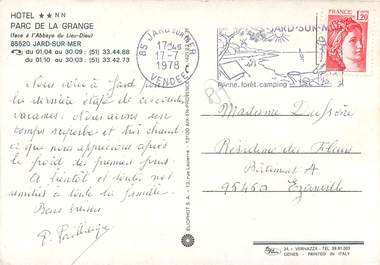 HOTEL ★★NN
PARC DE LA GRANGE
(face à l'Abbaye du Lieu-Dieu)
85520 JARD-SUR-MER
du 01.04 au 30.09 : (51) 33.44.88
du 01.10 au 30.03 : (51) 33.42.73
85 JARD SUR MER
17-7
1978
VENDEE
JARD-SUR-MER
Pinne.forêt.camping
FRANCE
1,20
Nous voici à Jard pour
la dernière étape de ces
vacances. Nous avons un
temps superbe et très chaud
ce que nous apprécions après
le froid des premiers jours.
A bientôt et toutes nos
amitiés à toute la famille.
Bons baisers
Madame
Résidence des Fleurs
Bâtiment A
95460 Ezanville
ELIOPHOT S.A. - 13, rue Laperre - 13100 AIX-EN-PROVENCE
34, r. VERNAZZA - TEL. 39.91.003
GENES - PRINTED IN ITALY